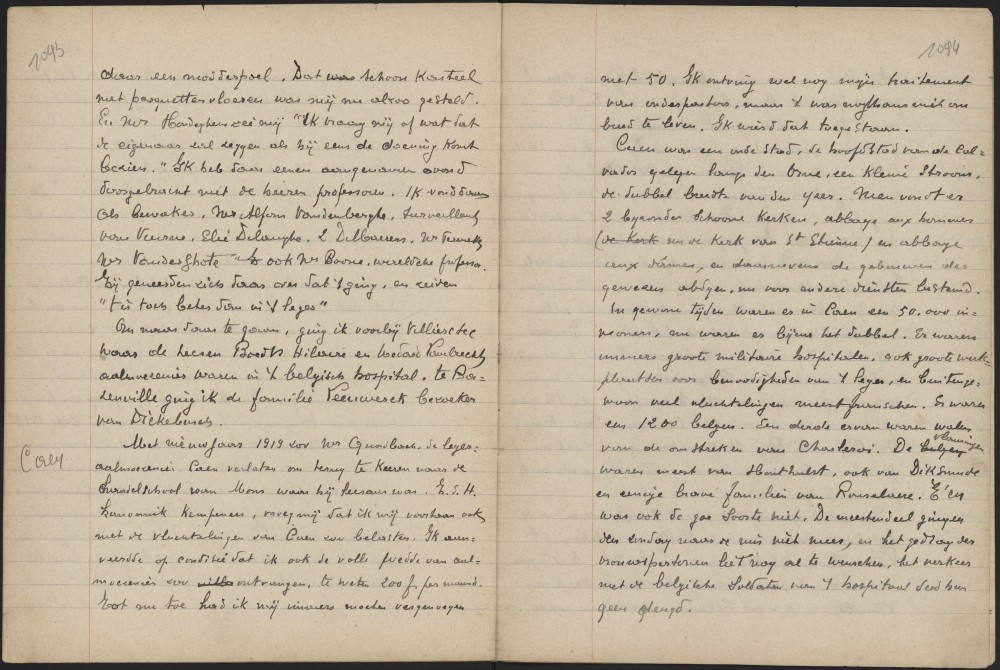 1093
daar een modderpoel. Dat was schoon Kasteel
met parquettenvloeren was mij nu alzoo gesteld.
En Mr zei mij "Ik vraag mij of wat dat
de eigenaar zal zeggen als hij eens de doening komt
bezien." Ik heb daar eenen aangenamen avond
doorgebracht met de heeren professoren. Ik vond daar
als bewaker, Mr Alfons Vandenberghe, surveillant
van Veurne, Elie Delanghe, 2 Mr
Mr VanderGhote ook Mr Boone, wereldsche professor.
Zij geneerden zich daar over dat 't ging, en zeiden
"t is toch beter dan in 't leger"
Om naar daar te gaan, ging ik voorbij Villiers le sec
waar de heeren Hilaire en
aalmoezeniers waren in 't belgisch hospitaal. te Ba-
zenville ging ik de familie Leeuwerck bezoeken
van Dickebusch.
Caen
Met nieuwjaar 1919 zou Mr de leger-
aalmoezenier Caen verlaten om terug te keeren naar de
handelschool van Mons waar hij leeraar was. E. H.
kanonnik Kempeneer, vroeg mij dat ik mij voortaan ook
met de vluchtelingen van Caen zou belasten. Ik aan-
veerdde op conditie dat ik ook de volle van aal-
moezenier zou ontvangen, te weten 200 f. per maand.
Tot nu toe had ik mij immers moeten vergenoegen
1094
met 50. Ik ontving wel nog mijn traitement
van onderpastoor, maar 't was nogthans niet om
breed te leven. Ik wierd dat toegestaan.
Caen was een oude stad, de hoofdstad van de Cal-
vados gelegen langs den Orne, een kleine stroom,
de dubbel breedt van den Yzer. Men vondt er
2 bijzonder schoone kerken, abbaye aux hommes
(de Kerk nu de kerk van St Etienne) en abbaye
aux dames, en daarnevens de gebouwen der
gewezen abdijen, nu voor andere diensten bestemd.
In gewone tijden waren er in Caen een 50.000 in-
woners, nu waren er bijna het dubbel. Er waren
immers groote militaire hospitalen, ook groote werk-
plaatsen voor benoodigheden van 't leger, en buitenge-
woon veel vluchtelingen meest franschen. Er waren
een 1200 belgen. Een derde ervan waren walen
van de omstreken van Charleroi. De belgen vlamingen
waren meest van Houthulst, ook van Diksmude
en eenige brave familien van Rousselare. 't En
was ook de gae soorte niet. De meestendeel gingen
den zondag naar de mis niet meer, en het gedrag der
vrouwspersoonen liet nog al te wenschen, het verkeer
met de belgische soldaten van 't hospitaal deed hun
geen deugd.